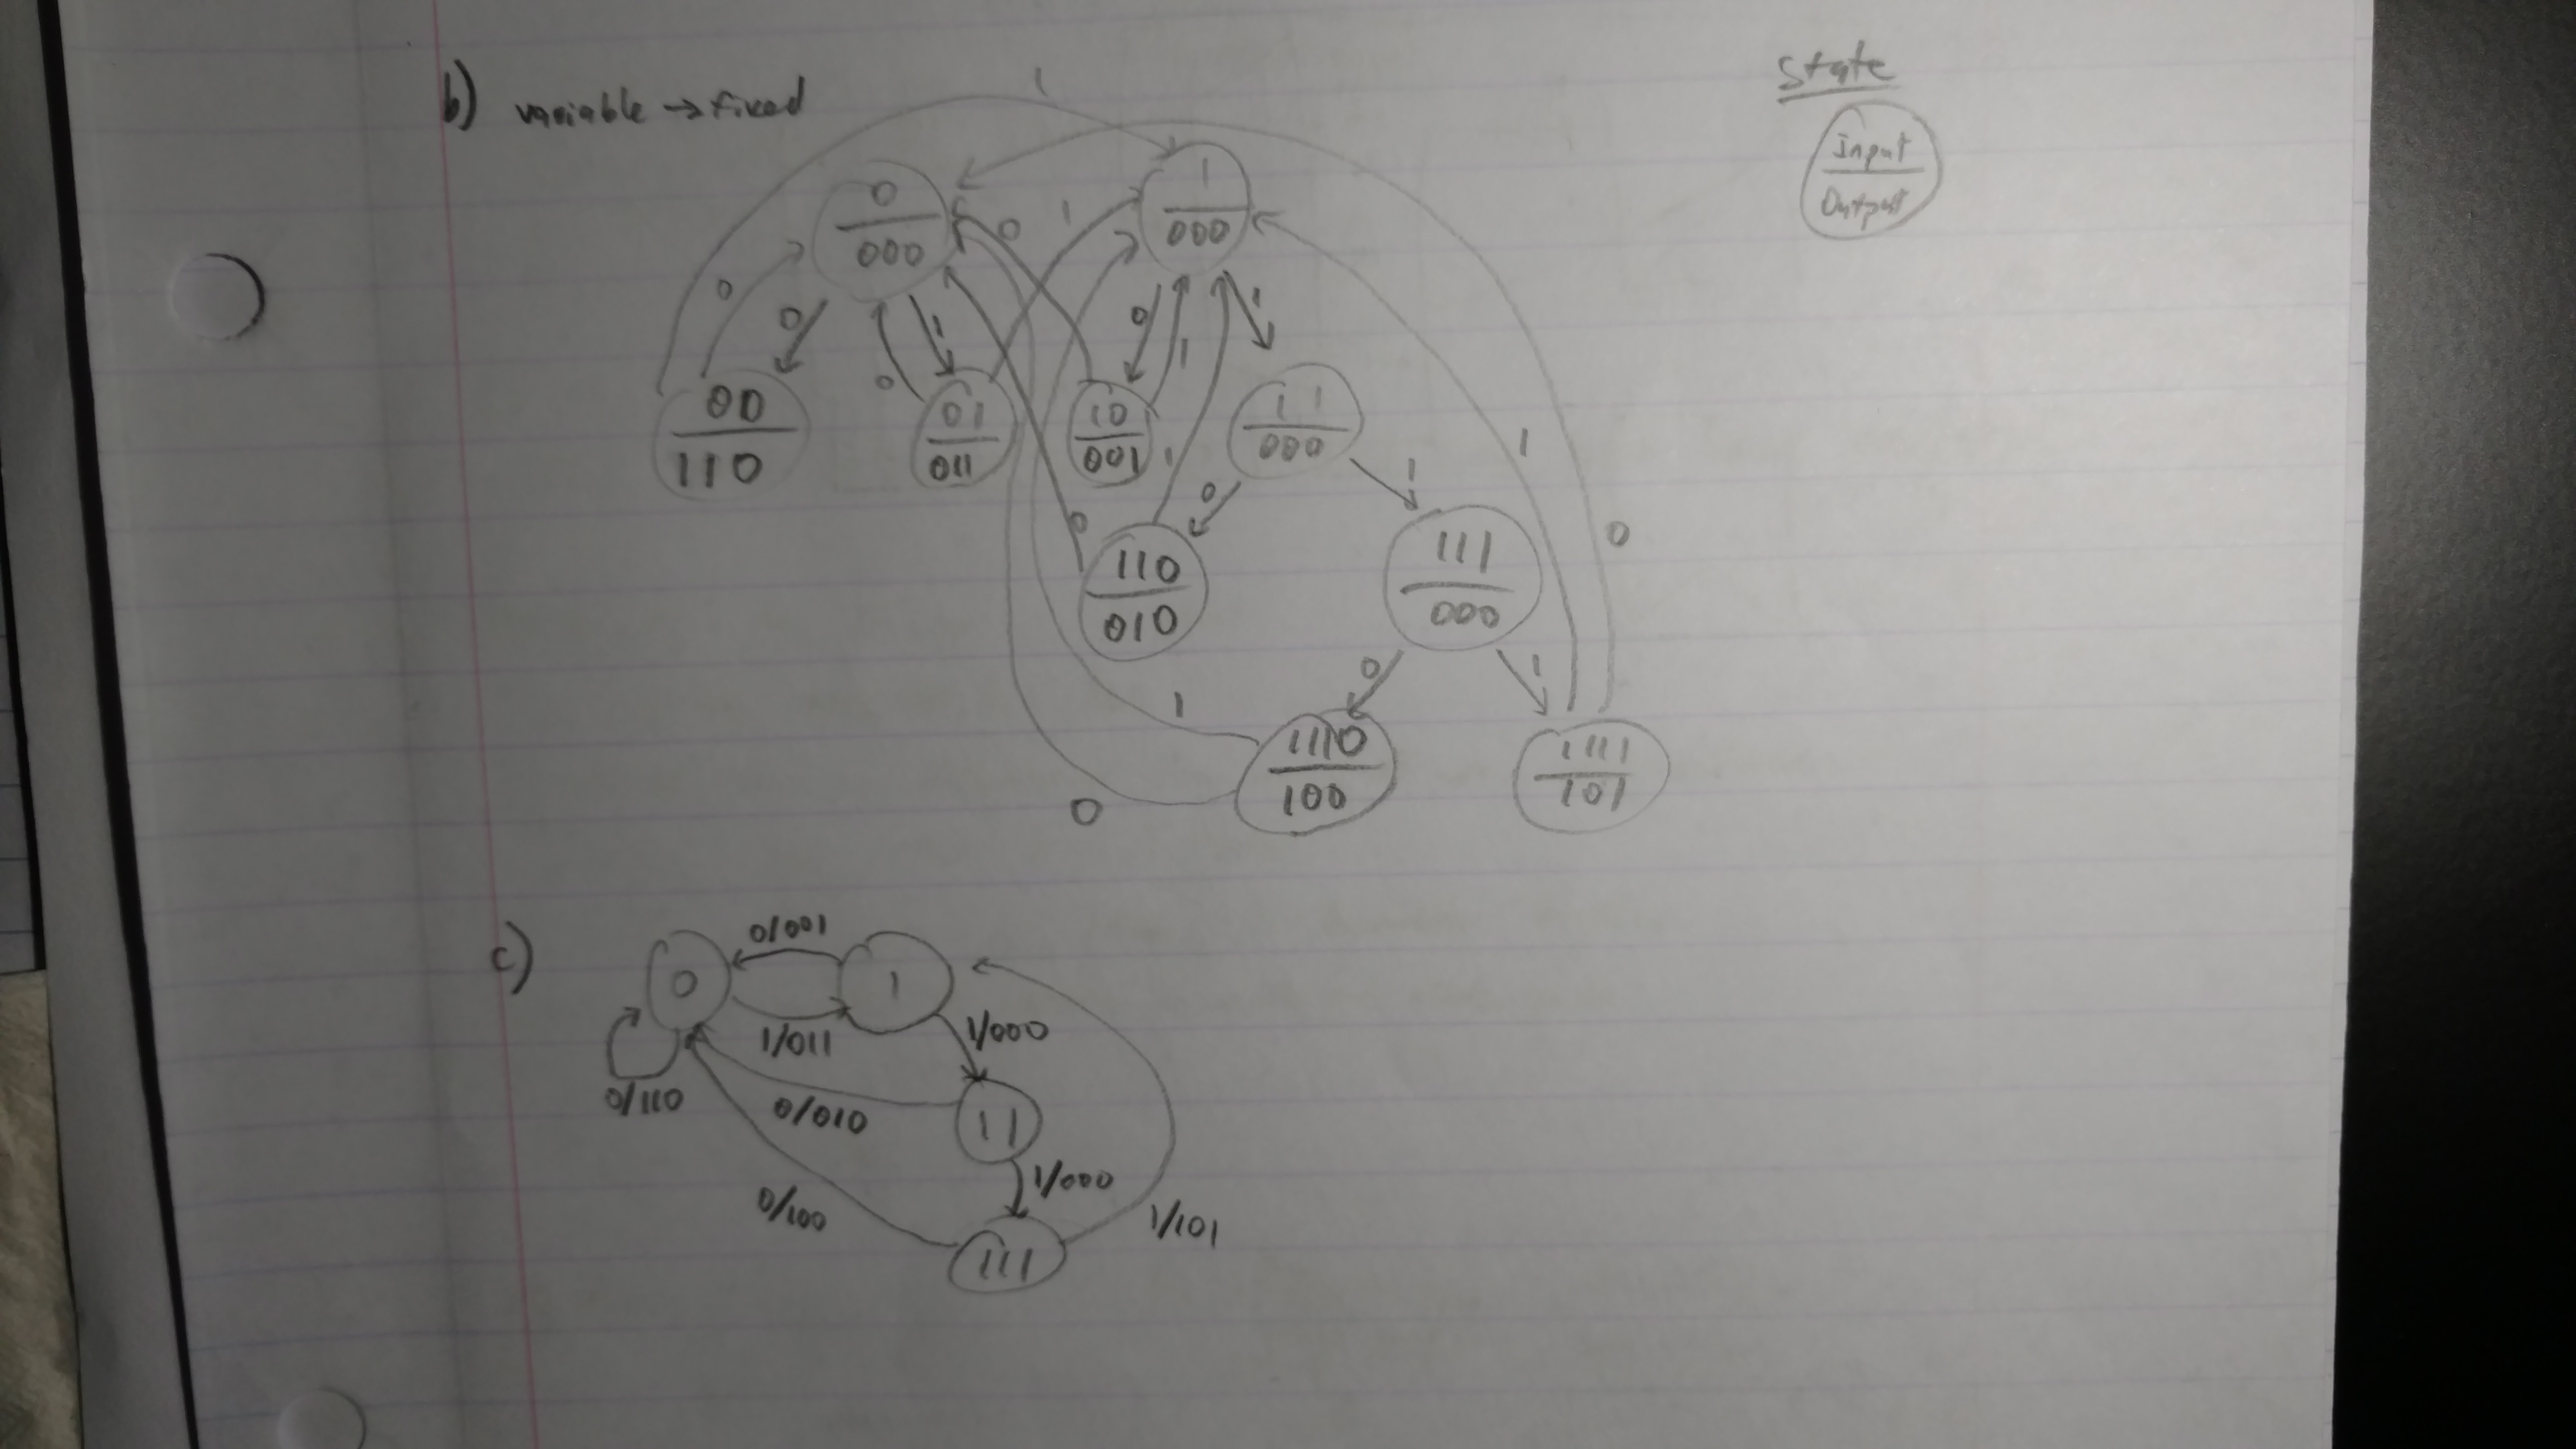 b) variable → fixed
State
Input
Output
1
0
000
1
000
0 1
0 0 1 0 1
0 1
00
110
01
011
10
001
11
000
1 0
1 0 1
0
110
010
111
000
0 1
1
1110
100
1111
101
0
c)
0/001
0 1
1/011 1/000
0/110 0/010 11
1/000
0/100 1/101
111